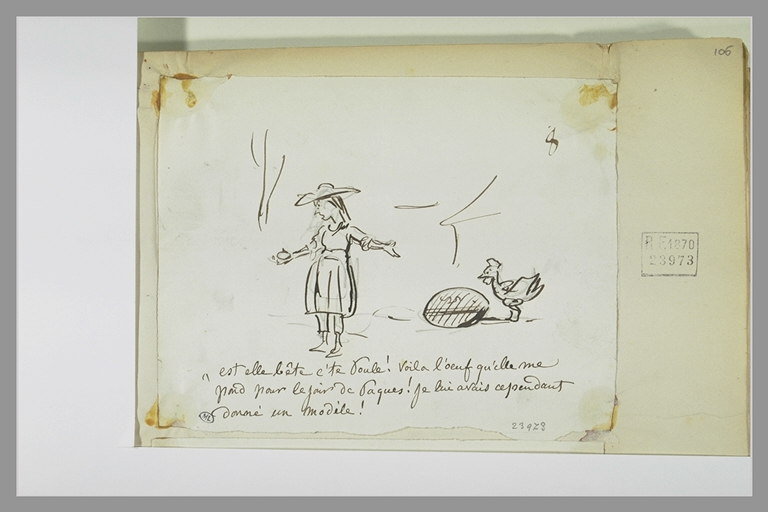 106
8
R.F. 1870
23973
" est elle bête c'te Poule! Voila l'oeuf qu'elle me
pond pour le jour de Pâques! je lui avais cependant
donné un modèle!
23973